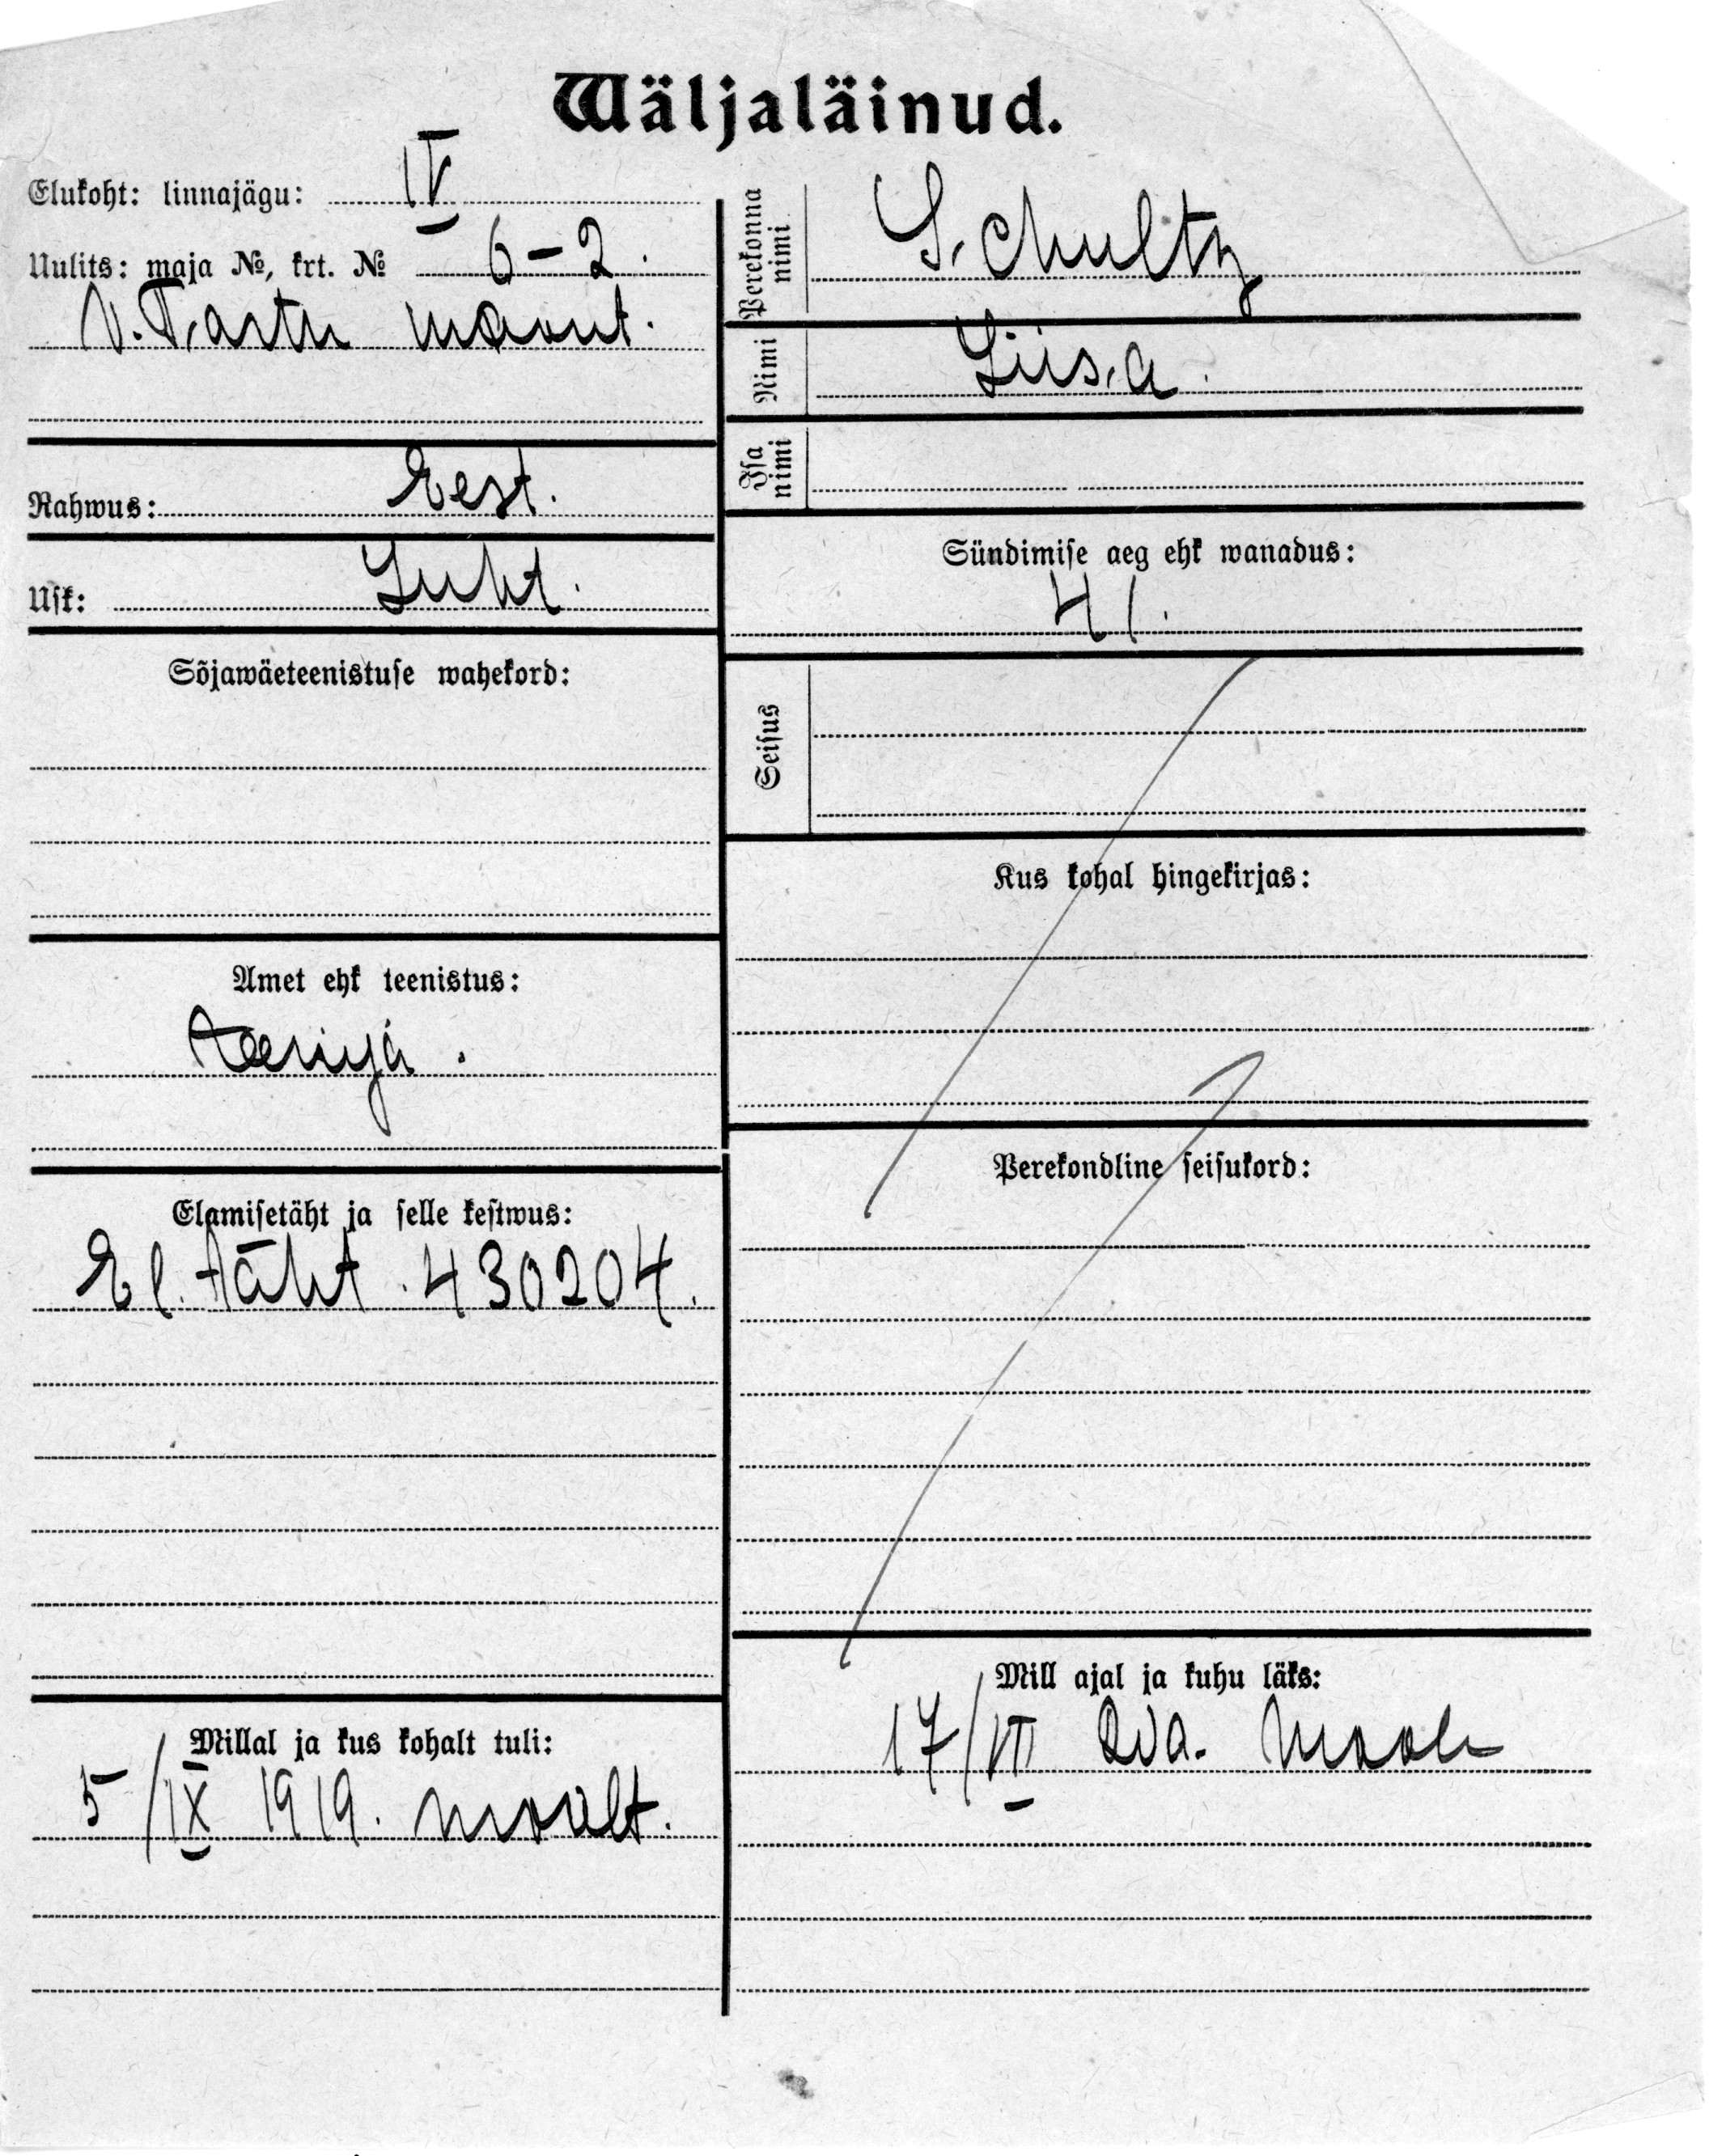 Wäljaläinud.
Elukoht: linnajägu: IV
Uulits: maja №, krt. № 6-2.
V. Tartu maant.
Rahwus: Eest.
Usk: Luht.
Sõjawäeteenistuse wahekord:
Amet ehk teenistus:
teenija.
Elamisetäht ja selle kestwus:
El. täht. 430204.
Millal ja kus kohalt tuli:
5/IX 1919. maalt.
Perekonna nimi Schultz
Nimi Liisa.
Isa nimi
Sündimise aeg ehk wanadus:
41.
Seisus
Kus kohal hingekirjas:
Perekondline seisukord:
Mill ajal ja kuhu läks:
17/VII